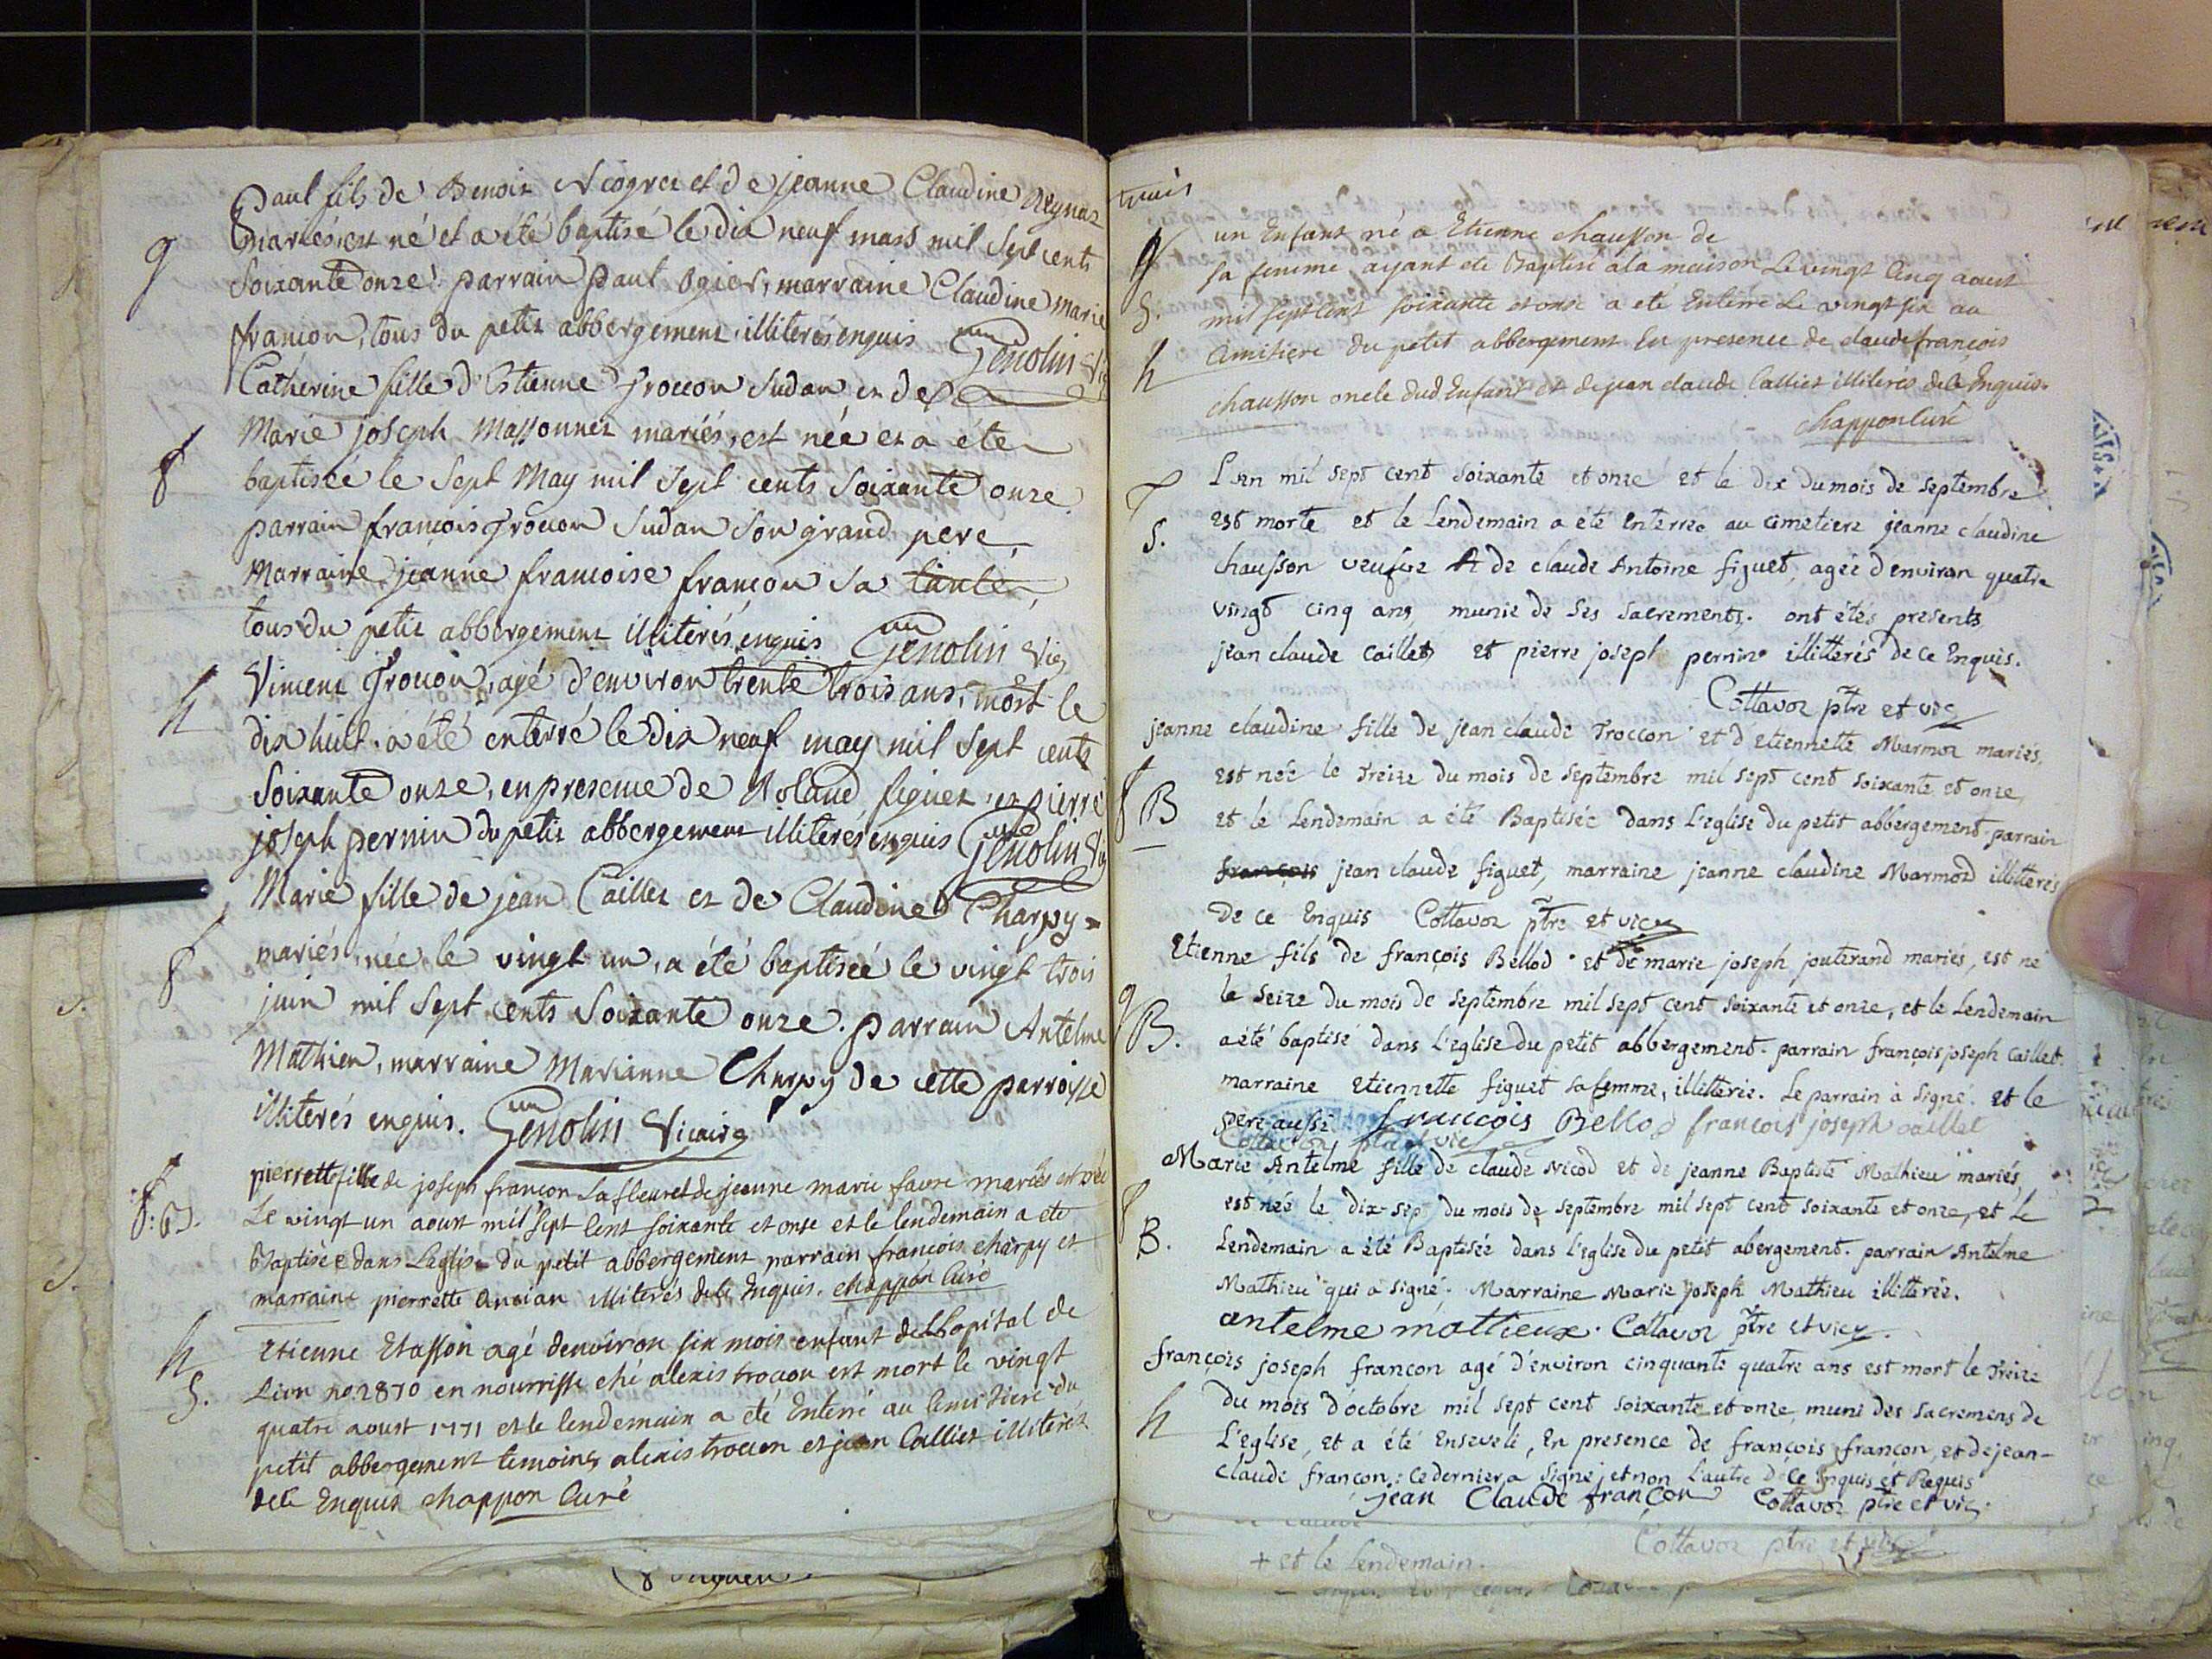 Paul fils de Benoit et de jeanne Claudine
g
mariés, est né et a été baptisé le dix neuf mars mil sept cents
soixante onze. parrain paul ogier, marraine Claudine marie
françon, tous du petit abbergement illiterés enquis Genolin Vic
Catherine fille d'Estienne Troccon Sudan et de
Marie joseph Massonnet mariés, est née et a éte
f
baptisée le sept May mil sept cents soixante onze
parrain francois Troccon Sudan son grand pere,
Marraine jeanne francoise françon sa tante,
tous du petit abbergement illiterés enquis Genolin Vic
h
Vincent Troccon, agé d'environ trente trois ans, mort le
dix huit a été enterré le dix neuf may mil sept cents
soixante onze, en presence de Roland figuet et pierre
joseph pernin du petit abbergement illiterés enquis Genolin Vic
Marie fille de jean Caillet et de Claudine Charpy
f
mariés, née le vingt un, a été baptisée le vingt trois
juin mil sept cents soixante onze. parrain Antelme
Mathieu, marraine Marianne Charpy de cette parroisse
illiterés enquis. Genolin Vicaire
f: B.
pierrette fille de joseph françon Lafleur et de jeanne marie favre mariés est née
Le vingt un aoust mil sept cent soixante et onse et le lendemain a ete
Baptisée dans Leglise du petit abbergement parrain francois charpy et
marraine pierrette Ancian illiterés de ce Enquis. chappon Curé
h
S.
Etienne Etasson agé denviron six mois enfant de Lhopital de
Lion no 2870 en nourrisse ché alexis trocon est mort le vingt
quatre aoust 1771 et le lendemain a eté Enterré au cimitiere du
petit abbergement temoins alexis trocon et jean Calliet illiterés
de ce Enquis chappon Curé
un Enfant né a Etienne chausson de
g
S.
h
sa femme ayant ete Baptisé a la maison Le vingt cinq aoust
mil sept cent soixante et onse a eté Enterré Le vingt six au
Cimitiere du petit abbergement En presence de claude francois
chausson oncle dud Enfant et de jean claude Calliet illiterés de ce Enquis.
chappon Curé
S.
L'an mil sept cent soixante et onze et le dix du mois de septembre
est morte et le Lendemain a été Enterrée au cimetiere jeanne claudine
chausson veufve de claude Antoine figuet, agée d'environ quatre
vingt cinq ans, munie de ses sacrements. ont étés presents
jean claude caillet et pierre joseph pernin illittérés de ce Enquis.
Cottavoz ptre et vic
jeanne claudine fille de jean claude Troccon et d'etiennette Marmoz mariés,
f B
est née le Treize du mois de septembre mil sept cent soixante et onze,
et le Lendemain a été Baptisée dans L'eglise du petit abbergement. parrain
françois jean claude figuet, marraine jeanne claudine Marmod illitterés
de ce Enquis Cottavoz ptre et vic
Etienne fils de françois Bellod et de marie joseph jouterand mariés, est né
g B.
le seize du mois de septembre mil sept cent soixante et onze, et le Lendemain
a été baptisé dans L'eglise du petit abbergement. parrain françois joseph Caillet.
marraine etiennette figuet sa femme, illitterée. Le parrain à signé. et le
pere aussi. francois Bellod francois joseph caillet
Cottavoz ptre et vic
Marie Antelme fille de claude Nicod et de jeanne Baptiste Mathieu mariés,
f
B.
est née le dix-sep du mois de septembre mil sept cent soixante et onze, et Le
Lendemain a été Baptisée dans L'eglise du petit abergement. parrain Antelme
Mathieu qui a signé. Marraine Marie joseph Mathieu illitterée.
antelme mattieux. Cottavoz ptre et vic
françois joseph francon agé d'environ cinquante quatre ans est mort le Treize
h
du mois d'octobre mil sept cent soixante et onze, muni des sacremens de
L'eglise, et a été Enseveli, En presence de françois françon, et de jean-
claude françon: ce dernier a signé, et non L'autre de ce Enquis et Requis
jean Claude françon Cottavoz ptre et vic.
Cottavoz ptre et vic
+ et le Lendemain.